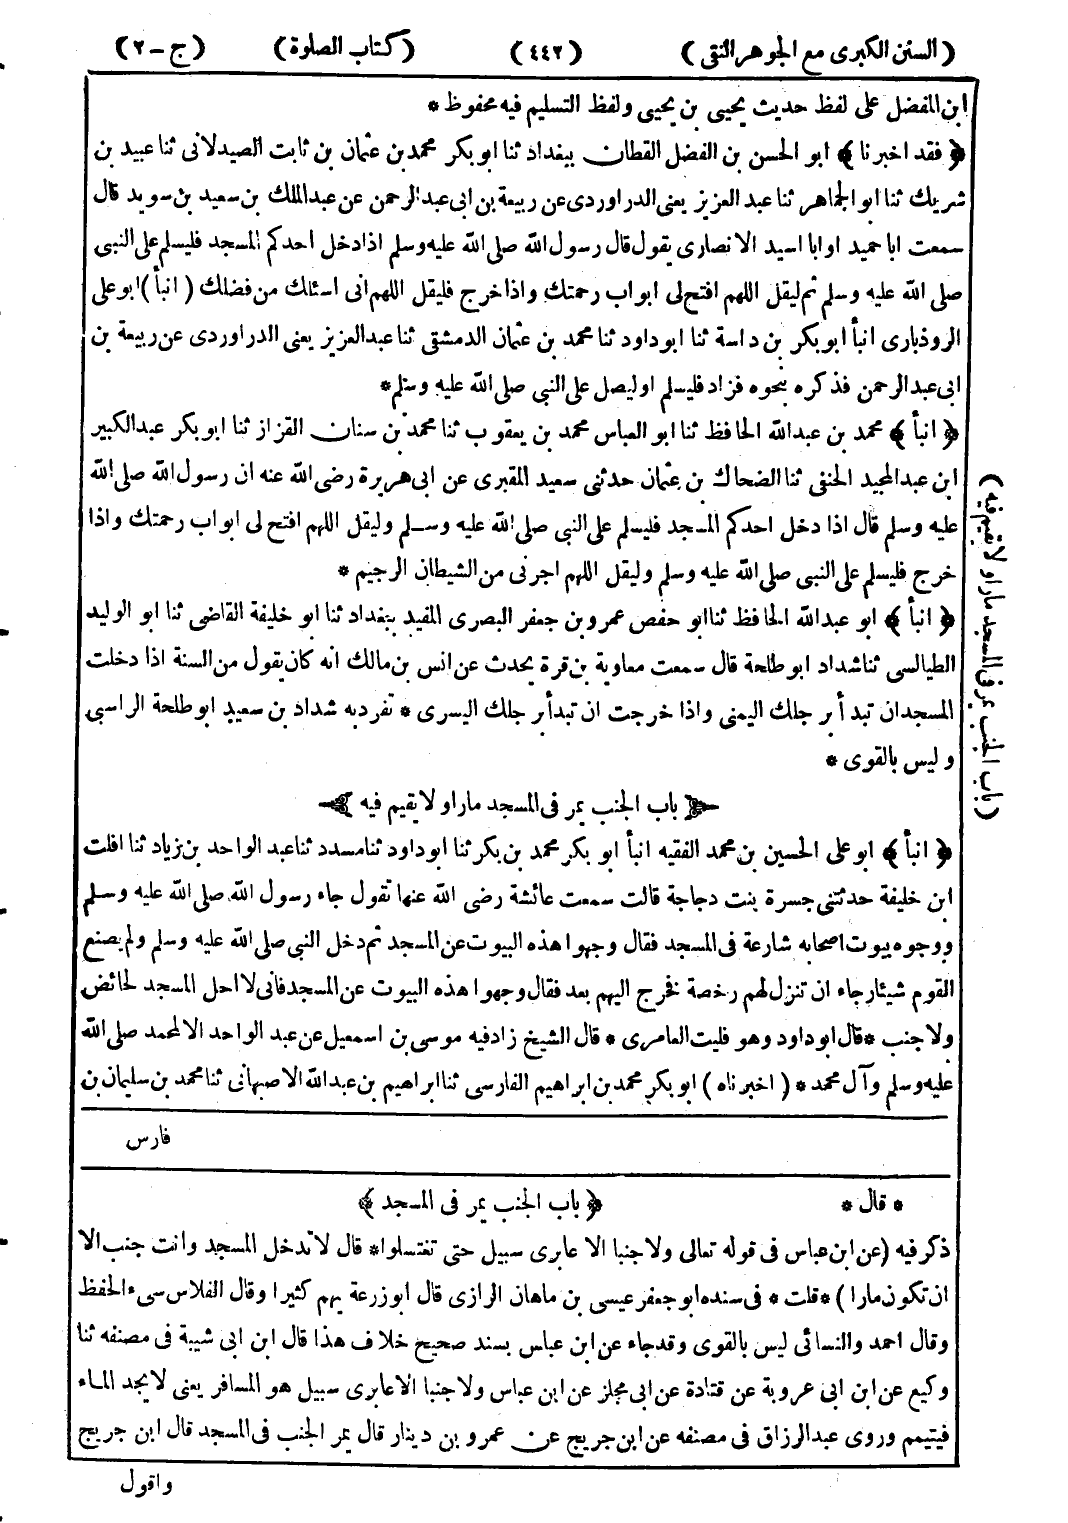 (السنن الكبرى مع الجوهر النقى) (٤٤٢) (كتاب الصلوة) (ج-٢)
ابن المفضل على لفظ حديث يحيى بن يحيى ولفظ التسليم فيه محفوظ *
﴿ فقد اخبرنا ﴾ ابو الحسن بن الفضل القطان ببغداد ثنا ابو بكر محمد بن عثمان بن ثابت الصيدلانى ثنا عبيد بن
شريك ثنا ابو الجماهر ثنا عبد العزيز يعنى الدراوردى عن ربيعة بن ابى عبد الرحمن عن عبد الملك بن سعيد بن سويد قال
سمعت ابا حميد او ابا اسيد الانصارى يقول قال رسول الله صلى الله عليه وسلم اذا دخل احدكم المسجد فليسلم على النبى
صلى الله عليه وسلم ثم ليقل اللهم افتح لى ابواب رحمتك واذا خرج فليقل اللهم انى اسئلك من فضلك (انبأ) ابو على
الروذبارى انبأ ابو بكر بن داسة ثنا ابو داود ثنا محمد بن عثمان الدمشقى ثنا عبد العزيز يعنى الدراوردى عن ربيعة بن
ابى عبد الرحمن فذكره بنحوه فزاد فليسلم او ليصل على النبى صلى الله عليه وسلم *
﴿ انبأ ﴾ محمد بن عبد الله الحافظ ثنا ابو العباس محمد بن يعقوب ثنا محمد بن سنان القزاز ثنا ابو بكر عبد الكبير
ابن عبد المجيد الحنفى ثنا الضحاك بن عثمان حدثنى سعيد المقبرى عن ابى هريرة رضى الله عنه ان رسول الله صلى الله
عليه وسلم قال اذا دخل احدكم المسجد فليسلم على النبى صلى الله عليه وسلم وليقل اللهم افتح لى ابواب رحمتك واذا
خرج فليسلم على النبى صلى الله عليه وسلم وليقل اللهم اجرنى من الشيطان الرجيم *
﴿ انبأ ﴾ ابو عبد الله الحافظ ثنا ابو حفص عمرو بن جعفر البصرى المفيد ببغداد ثنا ابو خليفة القاضى ثنا ابو الوليد
الطيالسى ثنا شداد ابو طلحة قال سمعت معاوية بن قرة يحدث عن انس بن مالك انه كان يقول من السنة اذا دخلت
المسجد ان تبدأ برجلك اليمنى واذا خرجت ان تبدأ برجلك اليسرى * تفرد به شداد بن سعيد ابو طلحة الراسبى
وليس بالقوى *
باب الجنب يمر فى المسجد مارا ولا يقيم فيه
﴿ انبأ ﴾ ابو على الحسين بن محمد الفقيه انبأ ابو بكر محمد بن بكر ثنا ابو داود ثنا مسدد ثنا عبد الواحد بن زياد ثنا افلت
ابن خليفة حدثتنى جسرة بنت دجاجة قالت سمعت عائشة رضى الله عنها تقول جاء رسول الله صلى الله عليه وسلم
ووجوه بيوت اصحابه شارعة فى المسجد فقال وجهوا هذه البيوت عن المسجد ثم دخل النبى صلى الله عليه وسلم ولم يصنع
القوم شيئا رجاء ان تنزل لهم رخصة فخرج اليهم بعد فقال وجهوا هذه البيوت عن المسجد فانى لا احل المسجد لحائض
ولا جنب * قال ابو داود وهو فليت العامرى * قال الشيخ زاد فيه موسى بن اسمعيل عن عبد الواحد الا لمحمد صلى الله
عليه وسلم وآل محمد * (اخبرناه) ابو بكر محمد بن ابراهيم الفارسى ثنا ابراهيم بن عبد الله الاصبهانى ثنا محمد بن سليمان بن
فارس
(باب الجنب يمر فى المسجد مارا ولا يقيم فيه)
* قال * ﴿ باب الجنب يمر فى المسجد ﴾
ذكر فيه (عن ابن عباس فى قوله تعالى ولا جنبا الا عابرى سبيل حتى تغتسلوا * قال لا تدخل المسجد وانت جنب الا
ان تكون مارا) * قلت * فى سنده ابو جعفر عيسى بن ماهان الرازى قال ابو زرعة يهم كثيرا وقال الفلاس سىء الحفظ
وقال احمد والنسائى ليس بالقوى وقد جاء عن ابن عباس بسند صحيح خلاف هذا قال ابن ابى شيبة فى مصنفه ثنا
وكيع عن ابن ابى عروبة عن قتادة عن ابى مجلز عن ابن عباس ولا جنبا الا عابرى سبيل هو المسافر يعنى لا يجد الماء
فيتيمم وروى عبد الرزاق فى مصنفه عن ابن جريج عن عمرو بن دينار قال يمر الجنب فى المسجد قال ابن جريج
واقول